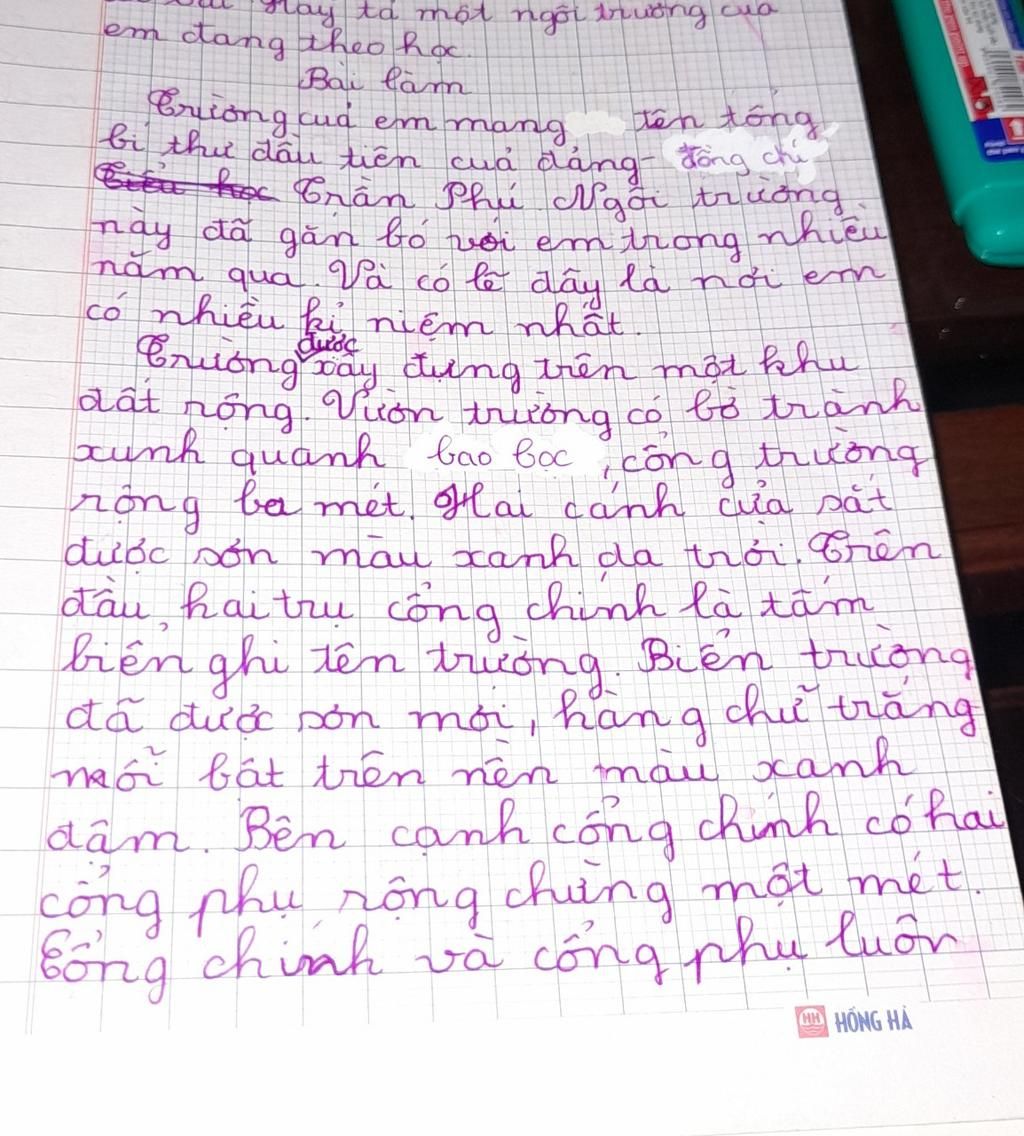 Hãy tả một ngôi trường của
em đang theo học.
Bài làm
Trường của em mang tên tổng
bí thư đầu tiên của đảng- đồng chí
Tiểu học Trần Phú. Ngôi trường
này đã gắn bó với em trong nhiều
năm qua. Và có lẽ đây là nơi em
có nhiều kỉ niệm nhất.
Trường được xây dựng trên một khu
đất rộng. Vườn trường có bờ trành
xunh quanh bao bọc, cổng trường
rộng ba mét. Hai cánh cửa sắt
được sơn màu xanh da trời. Trên
đầu hai trụ cổng chính là tấm
biển ghi tên trường. Biển trường
đã được sơn mới, hàng chữ trắng
nổi bật trên nền màu xanh
đậm. Bên cạnh cổng chính có hai
cổng phụ rộng chừng một mét.
Cổng chính và cổng phụ luôn
HH HỒNG HÀ